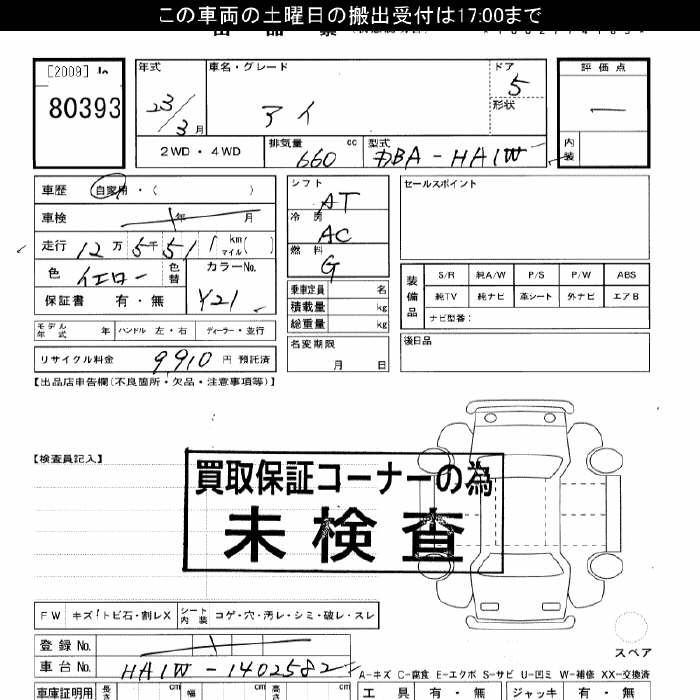 この車両の土曜日の搬出受付は17:00まで
[2009]
80393
年式
23/3月
車名・グレード
アイ
ドア
5
形状
評価点
―
内装
2WD・4WD
排気量
660 cc
型式
DBA-HA1W
車歴 自家用・( )
車検 年 月
走行 12万 5千 51 km マイル( )
色 イエロー 色替
カラーNo.
Y21
保証書 有・無
シフト
AT
冷房
AC
燃料
G
乗車定員 名
積載量 kg
総重量 kg
名変期限
月 日
セールスポイント
装備品
S/R 純A/W P/S P/W ABS
純TV 純ナビ 革シート 外ナビ エアB
ナビ型番:
後日品
モデル年式 年 ハンドル 左・右 ディーラー・並行
リサイクル料金 9910 円 預託済
【出品店申告欄(不良箇所・欠品・注意事項等)】
【検査員記入】
買取保証コーナーの為
未検査
FW キズ!トビ石・割レX シート内装 コゲ・穴・汚レ・シミ・破レ・スレ
スペア
登録No.
車台No. HA1W-1402582
A-キズ C-腐食 E-エクボ S-サビ U-凹ミ W-補修 XX-交換済
車庫証明用 長さ cm 幅 cm 高さ cm
工具 有・無 ジャッキ 有・無